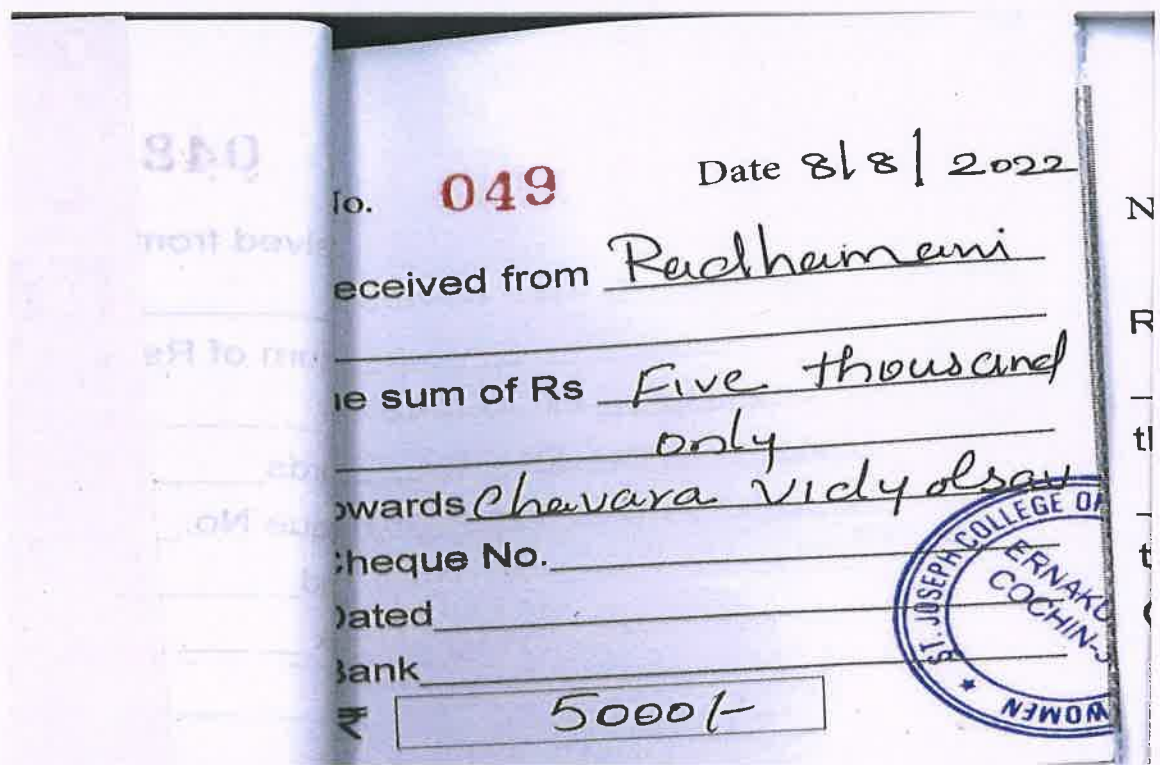 No. 049 Date 8/8/2022
eceived from Radhamani
e sum of Rs Five thousand
only
owards Chavara Vidyolsav
heque No.
Dated
Bank
₹ 5000/-
ST. JOSEPH COLLEGE OF
WOMEN
ERNAKU
COCHIN-3